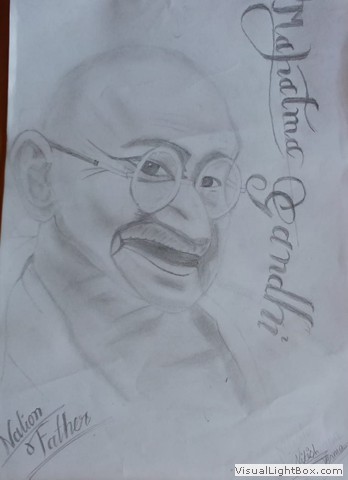 Mahatma Gandhi
Nation
Father
VisualLightBox.com